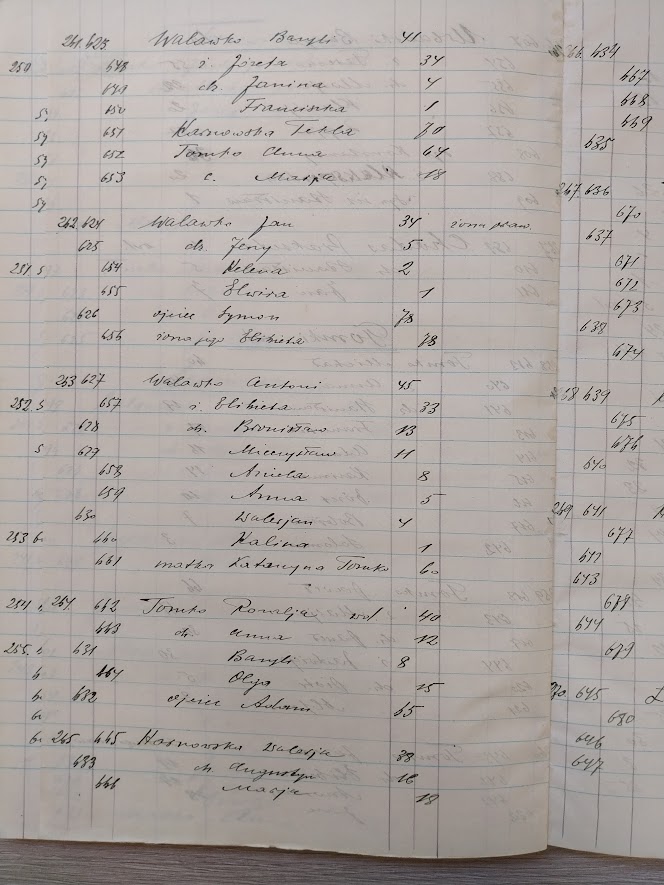 261.625 Walawko Bazyli 41
250 648 ż. Józefa 34
649 dz. Janina 4
650 Franciszka 1
651 Karnowska Tekla 70
652 Tomko Anna 64
653 c. Marja 18
262.624 Walawko Jan 34 żona praw.
625 dz. Jerzy 5
251.5 654 Helena 2
655 Elwira 1
626 ojciec Szymon 78
656 żona jego Elżbieta 78
263 627 Walawko Antoni 45
252.5 657 ż. Elżbieta 33
628 dz. Bronisław 13
5 629 Mieczysław 11
658 Aniela 8
659 Anna 5
630 Walerjan 4
253 660 Halina 1
661 matka Katarzyna Tomko 60
254 264 662 Tomko Rozalja wd. 40
663 dz. Anna 12
255. 631 Bazyli 8
664 Olga 15
682 ojciec Adam 65
265 665 Karnowska Walerja 38
683 dz. Augustyn 16
666 Marja 18
266. 634
667
668
669
635
267. 636
670
637
671
672
673
638
674
268 639
675
676
640
269 641
677
642
643
678
644
679
270 645
680
646
647